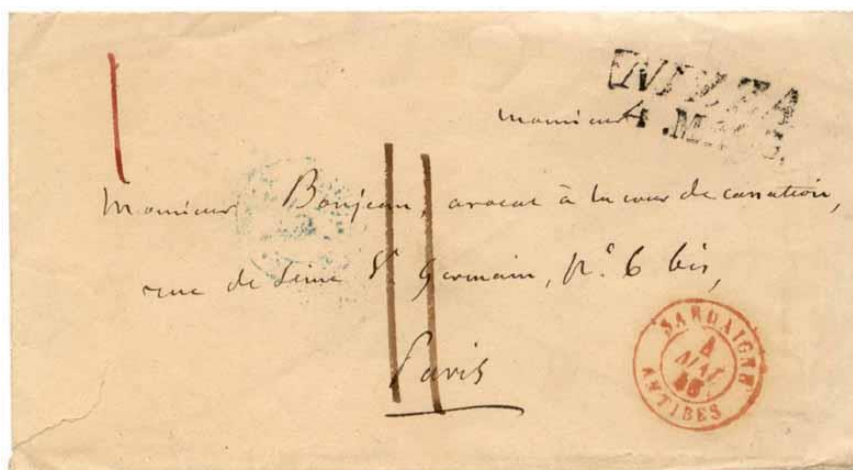 NIZZA
4. MAG.
Monsieur
Monsieur Bonjean, avocat à la cour de cassation,
rue de Seine St Germain, no. 6 bis,
Paris
SARDAIGNE
4
MAI
ANTIBES